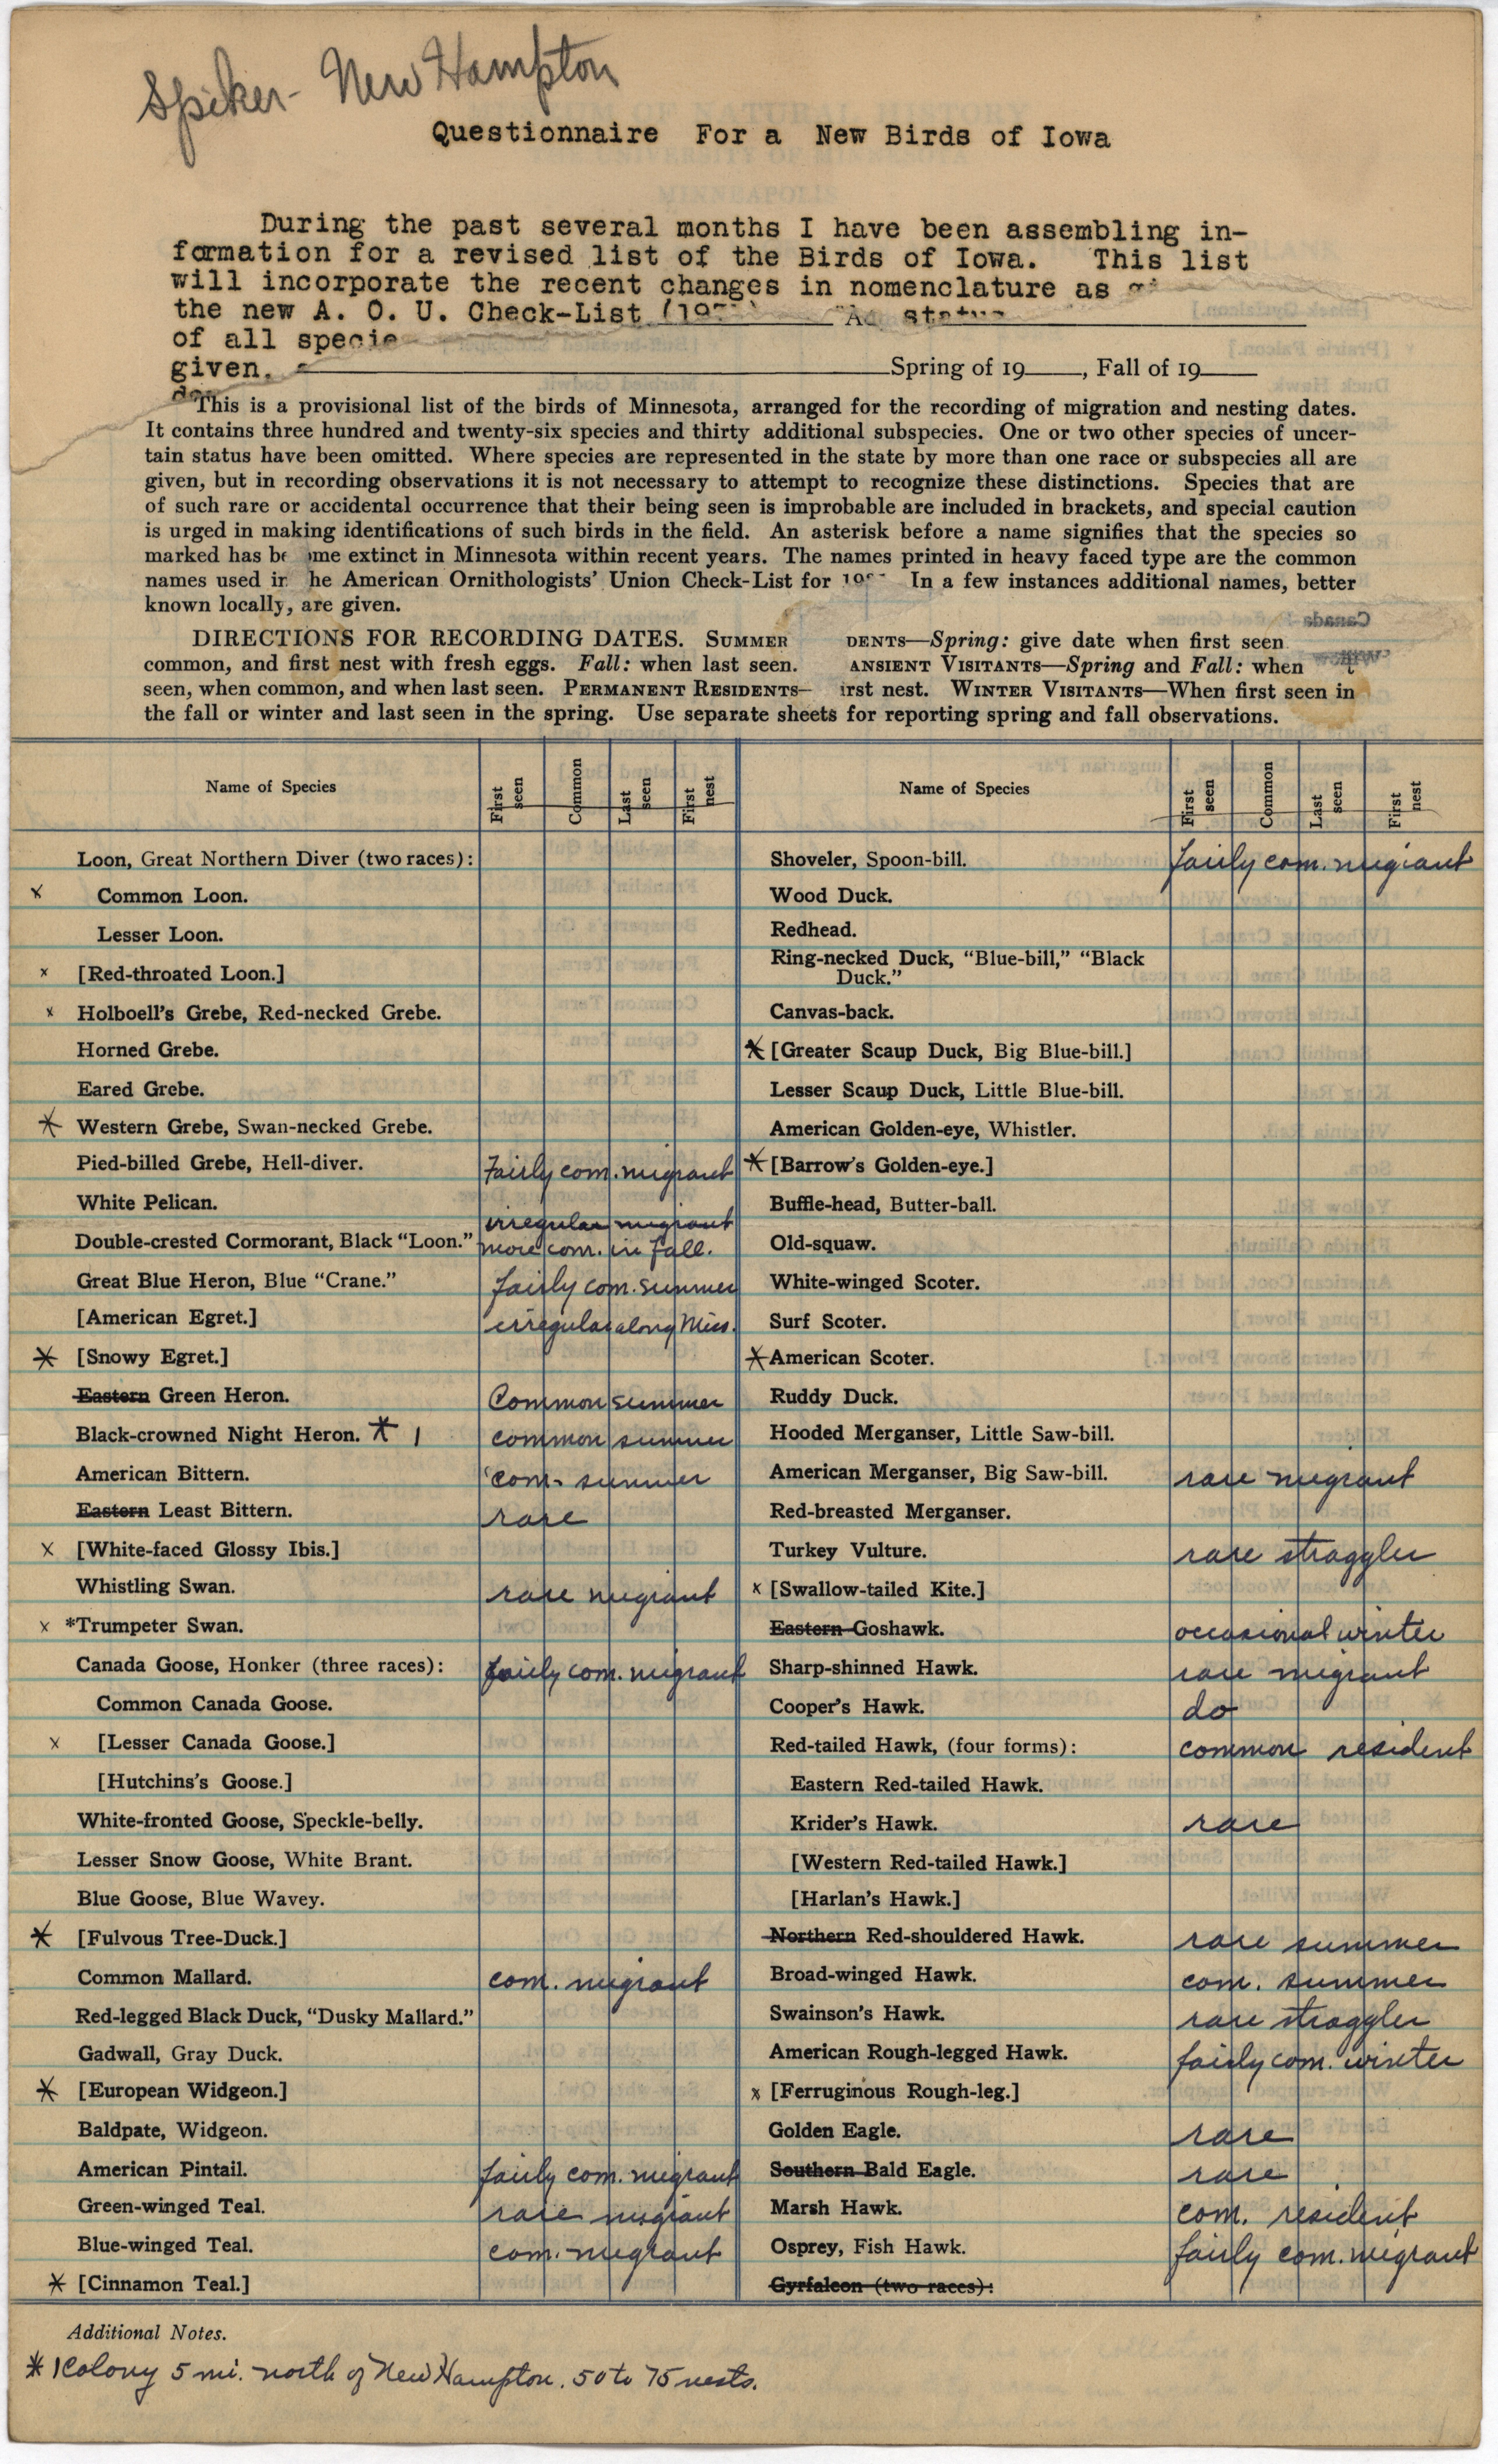 Spiker- New Hampton
Questionnaire For a New Birds of Iowa
During the past several months I have been assembling in-
formation for a revised list of the Birds of Iowa. This list
will incorporate the recent changes in nomenclature as
the new A. O. U. Check-List
of all specie
given.
Spring of 19___, Fall of 19___
This is a provisional list of the birds of Minnesota, arranged for the recording of migration and nesting dates.
It contains three hundred and twenty-six species and thirty additional subspecies. One or two other species of uncer-
tain status have been omitted. Where species are represented in the state by more than one race or subspecies all are
given, but in recording observations it is not necessary to attempt to recognize these distinctions. Species that are
of such rare or accidental occurrence that their being seen is improbable are included in brackets, and special caution
is urged in making identifications of such birds in the field. An asterisk before a name signifies that the species so
marked has be ome extinct in Minnesota within recent years. The names printed in heavy faced type are the common
names used in he American Ornithologists' Union Check-List for In a few instances additional names, better
known locally, are given.
DIRECTIONS FOR RECORDING DATES. SUMMER DENTS—Spring: give date when first seen
common, and first nest with fresh eggs. Fall: when last seen. ANSIENT VISITANTS—Spring and Fall: when
seen, when common, and when last seen. PERMANENT RESIDENTS— irst nest. WINTER VISITANTS—When first seen in
the fall or winter and last seen in the spring. Use separate sheets for reporting spring and fall observations.
Name of Species First seen Common Last seen First nest
Loon, Great Northern Diver (two races):
x Common Loon.
Lesser Loon.
x [Red-throated Loon.]
x Holboell's Grebe, Red-necked Grebe.
Horned Grebe.
Eared Grebe.
* Western Grebe, Swan-necked Grebe.
Pied-billed Grebe, Hell-diver. Fairly com. migrant
White Pelican.
irregular migrant
Double-crested Cormorant, Black "Loon." more com. in fall.
Great Blue Heron, Blue "Crane." fairly com. summer
[American Egret.] irregular along Miss.
* [Snowy Egret.]
Eastern Green Heron. Common summer
Black-crowned Night Heron. * 1 common summer
American Bittern. com. summer
Eastern Least Bittern. rare
x [White-faced Glossy Ibis.]
Whistling Swan. rare migrant
x *Trumpeter Swan.
Canada Goose, Honker (three races): fairly com. migrant
Common Canada Goose.
x [Lesser Canada Goose.]
[Hutchins's Goose.]
White-fronted Goose, Speckle-belly.
Lesser Snow Goose, White Brant.
Blue Goose, Blue Wavey.
* [Fulvous Tree-Duck.]
Common Mallard. com. migrant
Red-legged Black Duck, "Dusky Mallard."
Gadwall, Gray Duck.
* [European Widgeon.]
Baldpate, Widgeon.
American Pintail. fairly com. migrant
Green-winged Teal. rare migrant
Blue-winged Teal. com. migrant
* [Cinnamon Teal.]
Name of Species First seen Common Last seen First nest
Shoveler, Spoon-bill. fairly com. migrant
Wood Duck.
Redhead.
Ring-necked Duck, "Blue-bill," "Black
Duck."
Canvas-back.
* [Greater Scaup Duck, Big Blue-bill.]
Lesser Scaup Duck, Little Blue-bill.
American Golden-eye, Whistler.
* [Barrow's Golden-eye.]
Buffle-head, Butter-ball.
Old-squaw.
White-winged Scoter.
Surf Scoter.
* American Scoter.
Ruddy Duck.
Hooded Merganser, Little Saw-bill.
American Merganser, Big Saw-bill. rare migrant
Red-breasted Merganser.
Turkey Vulture. rare straggler
x [Swallow-tailed Kite.]
Eastern Goshawk. occasional winter
Sharp-shinned Hawk. rare migrant
Cooper's Hawk. do
Red-tailed Hawk, (four forms): common resident
Eastern Red-tailed Hawk.
Krider's Hawk. rare
[Western Red-tailed Hawk.]
[Harlan's Hawk.]
Northern Red-shouldered Hawk. rare summer
Broad-winged Hawk. com. summer
Swainson's Hawk. rare straggler
American Rough-legged Hawk. fairly com. winter
x [Ferruginous Rough-leg.]
Golden Eagle. rare
Southern Bald Eagle. rare
Marsh Hawk. com. resident
Osprey, Fish Hawk. fairly com. migrant
Gyrfalcon (two races):
Additional Notes.
* 1 Colony 5 mi. north of New Hampton. 50 to 75 nests.